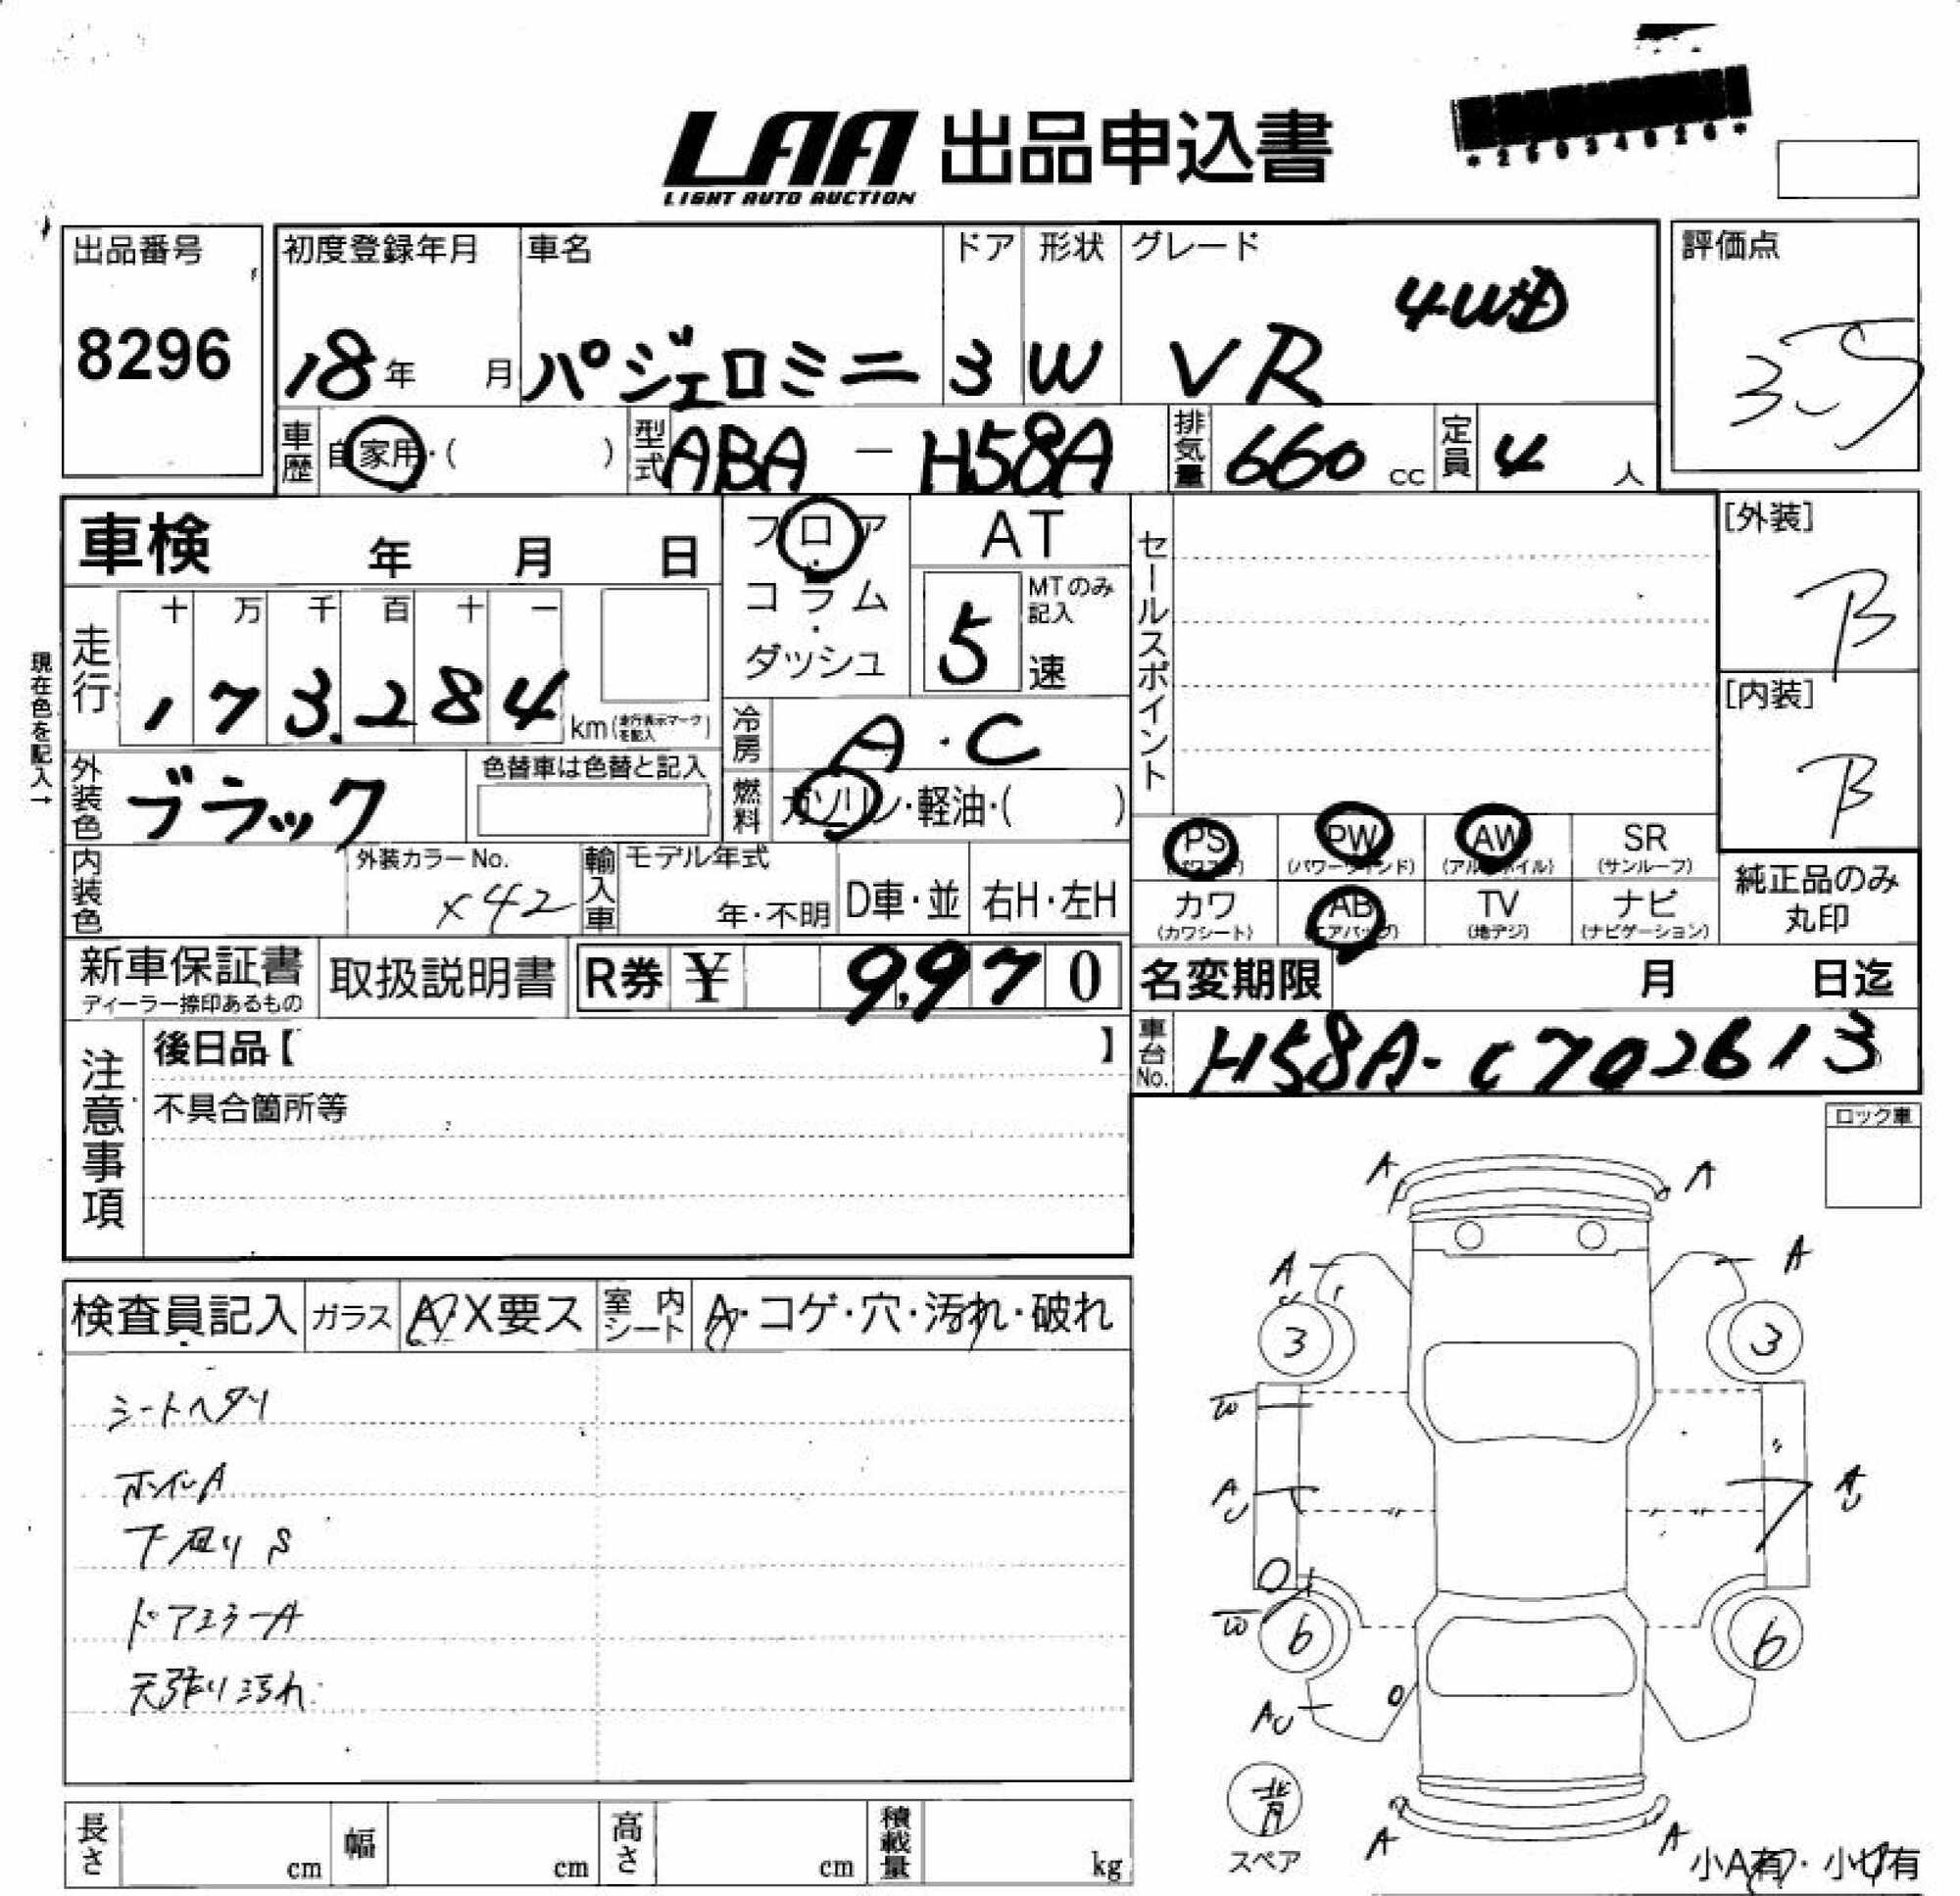 LAA 出品申込書
LIGHT AUTO AUCTION
出品番号
8296
初度登録年月
18年 月
車名
パジェロミニ
ドア
3
形状
W
グレード
VR 4WD
評価点
3.5
車歴 自家用・( )
型式 ABA - H58A
排気量 660 cc
定員 4 人
車検 年 月 日
フロア・コラム・ダッシュ
AT
MTのみ記入
5 速
セールスポイント
[外装]
B
[内装]
B
現在色を記入→
走行 十 万 千 百 十 一
173,284 km (走行表示マークを記入)
冷房 A・C
外装色 ブラック
色替車は色替と記入
燃料 ガソリン・軽油・( )
PS (パワステ)
PW (パワーウィンド)
AW (アルミホイル)
SR (サンルーフ)
カワ (カワシート)
AB (エアバッグ)
TV (地デジ)
ナビ (ナビゲーション)
純正品のみ丸印
内装色
外装カラーNo.
X42
輸入車
モデル年式
年・不明
D車・並
右H・左H
新車保証書
ディーラー捺印あるもの
取扱説明書
R券 ¥ 9,970
名変期限 月 日迄
車台No. H58A-C702613
注意事項
後日品【 】
不具合箇所等
ロック車
検査員記入
ガラス A・X要ス
室内シート A・コゲ・穴・汚れ・破れ
シートヘタリ
ホイルA
下廻りS
ドアミラーA
天張り汚れ
A A
A A
U
3 3
W
AU AU
W
6 6
AU
背
スペア
A A
小A有・小U有
長さ cm
幅 cm
高さ cm
積載量 kg